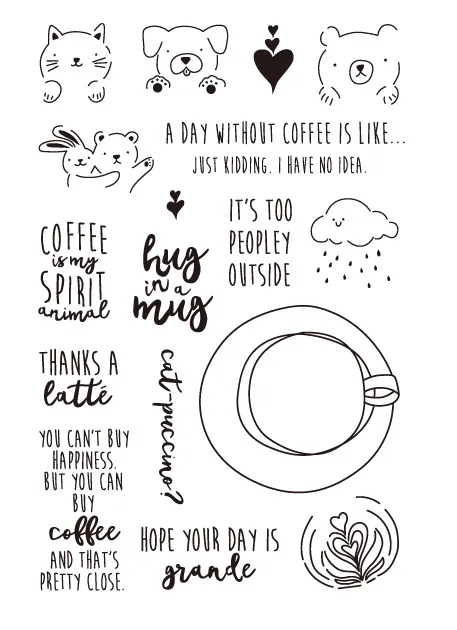 A DAY WITHOUT COFFEE IS LIKE...
JUST KIDDING. I HAVE NO IDEA.
COFFEE
is my
SPIRIT
animal
hug
in a
mug
IT'S TOO
PEOPLEY
OUTSIDE
THANKS A
latté
cat-puccino?
YOU CAN'T BUY
HAPPINESS.
BUT YOU CAN
BUY
coffee
AND THAT'S
PRETTY CLOSE.
HOPE YOUR DAY IS
grande